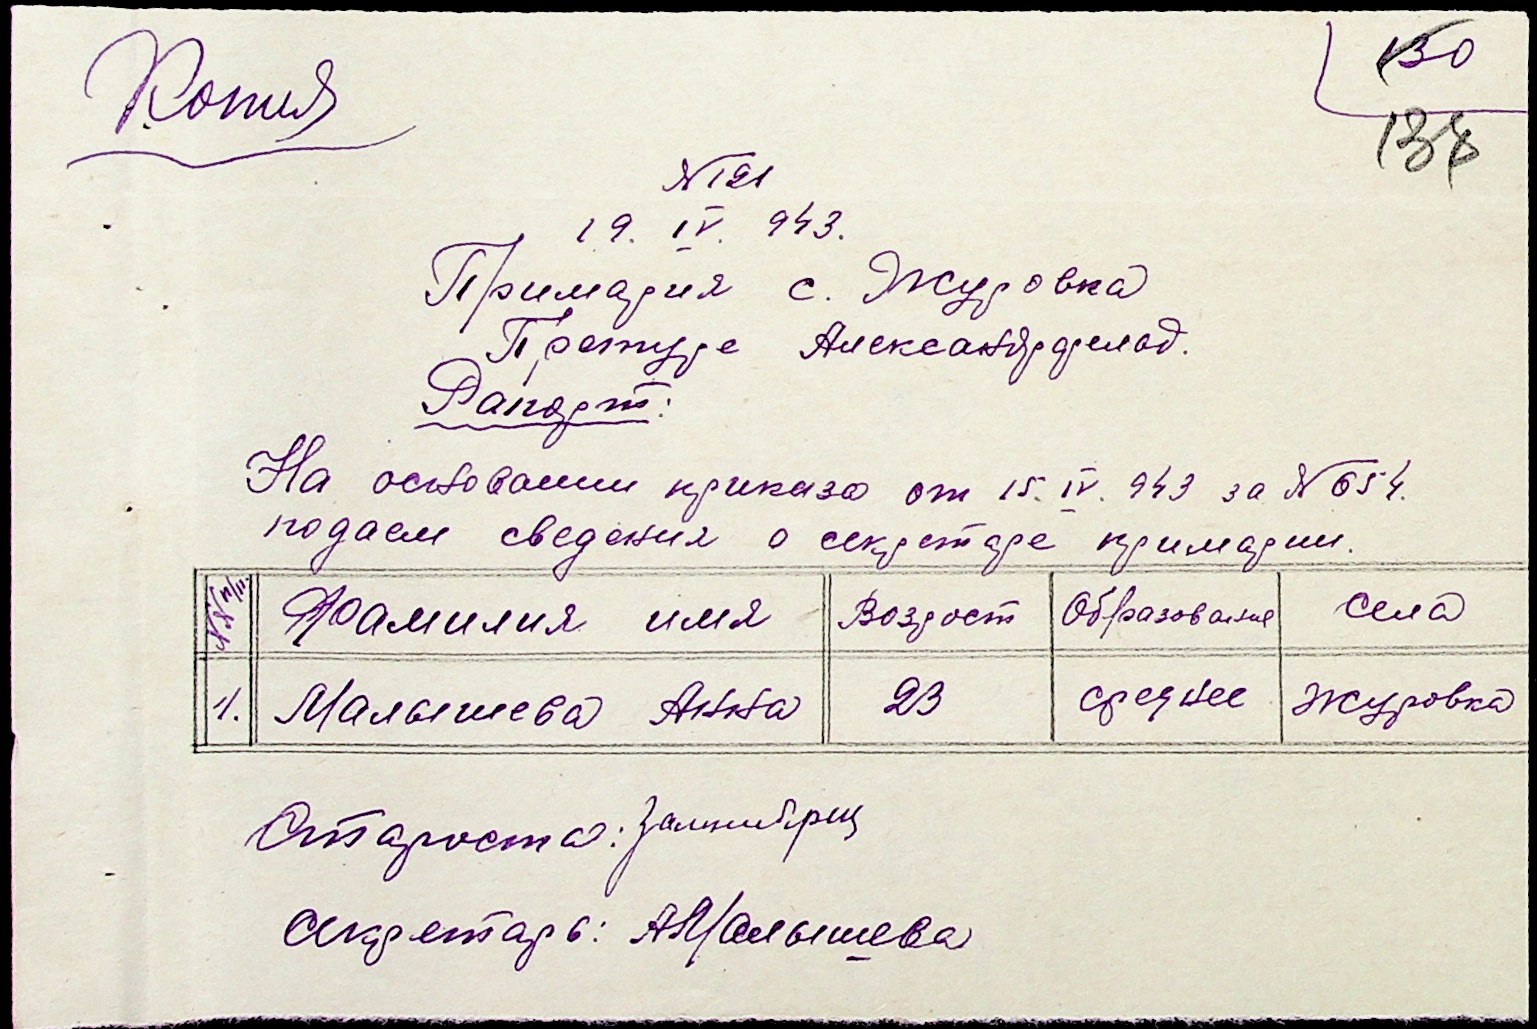 Копия
130
137
№121
19. IV. 943.
Примария с. Журовка
Претуре Александрфелд.
Рапорт:
На основании приказа от 15. IV. 943 за №654.
подаем сведения о секретаре примарии.
№№ п/п. Фамилия имя Возрост Образование Село
1. Малышева Анна 23 среднее Журовка
Староста:
Секретарь: АМалышева